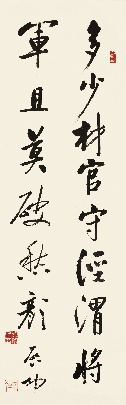 多少材官守涇渭將
軍且莫破愁顏 啓功